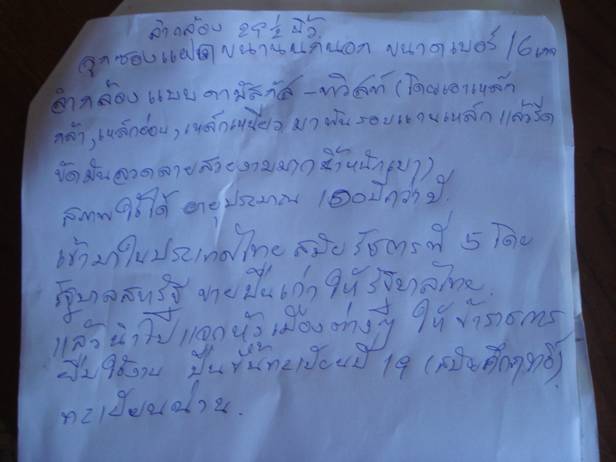 ลำกล้อง 29 1/2 นิ้ว.
ลูกซองแฝดขนานนกนอก ขนาดเบอร์ 16 เกจ
ลำกล้องแบบดามัสกัส - ทวิสท์ (โดยเอาเหล็ก
กล้า, เหล็กอ่อน, เหล็กเหนียว มาพันรอบแกนเหล็ก แล้วรีด
ขัดมันลวดลายสวยงามมาก น้ำหนักเบา)
สภาพใช้ได้ อายุประมาณ 100ปีกว่าปี.
เข้ามาในประเทศไทย สมัย รัชการที่ 5 โดย
รัฐบาลสหรัฐ ขายปืนเก่า ให้รัฐบาลไทย.
แล้วนำไปแจกหัวเมืองต่างๆ ให้ข้าราชการ
ยืมใช้งาน ปืนขึ้นทะเบียนปี 19 (สมัยศึกฤทธิ์)
ทะเบียนน่าน.